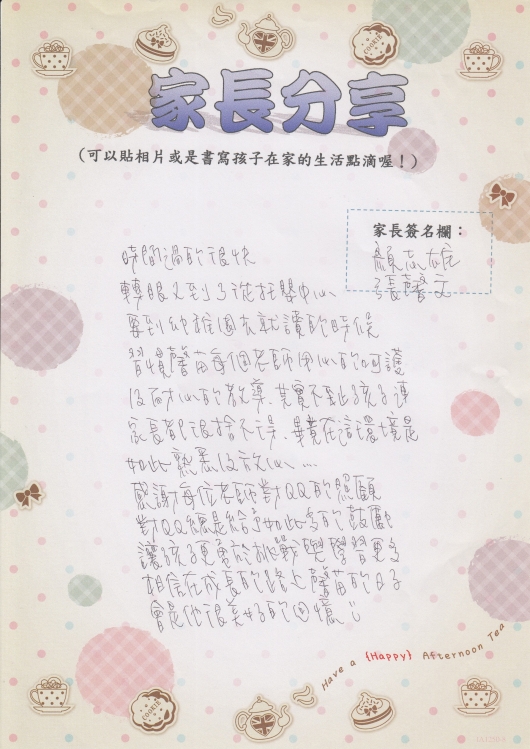 家長分享
(可以貼相片或是書寫孩子在家的生活點滴喔！)
家長簽名欄：
顏志雄
張馨文
時間過的很快
轉眼又到了從托嬰中心
要到幼稚園去就讀的時候
習慣馨苗每個老師用心的呵護
及耐心的教導、其實不止孩子連
家長都很捨不得、畢竟在這環境是
如此熟悉及放心…
感謝每位老師對QQ的照顧
對QQ總是給予如此多的鼓勵
讓孩子更勇於挑戰與學習更多
相信在成長的路上馨苗的日子
會是他很美好的回憶
Have a {Happy} Afternoon Tea